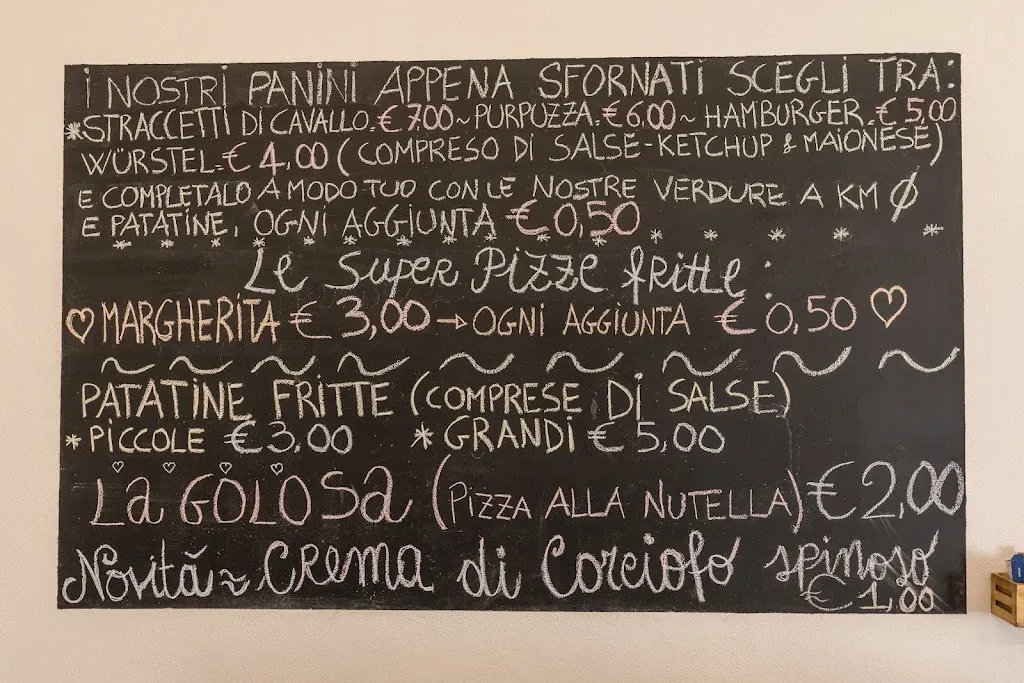 I NOSTRI PANINI APPENA SFORNATI SCEGLI TRA:
*STRACCETTI DI CAVALLO.€ 7.00~PURPUZZA.€6.00~HAMBURGER.€5,00
WÜRSTEL.€ 4,00 (COMPRESO DI SALSE-KETCHUP & MAIONESE)
E COMPLETALO A MODO TUO CON LE NOSTRE VERDURE A KM Ø
E PATATINE, OGNI AGGIUNTA €0,50
* * * * * * * * * * * * * *
Le Super Pizze fritte:
♡MARGHERITA € 3,00→OGNI AGGIUNTA € 0,50 ♡
PATATINE FRITTE (COMPRESE DI SALSE)
*PICCOLE €3,00 *GRANDI € 5,00
La GOLOSa (PIZZA ALLA NUTELLA) €2,00
Novità ~ Crema di Corciofo spinoso
€ 1,00